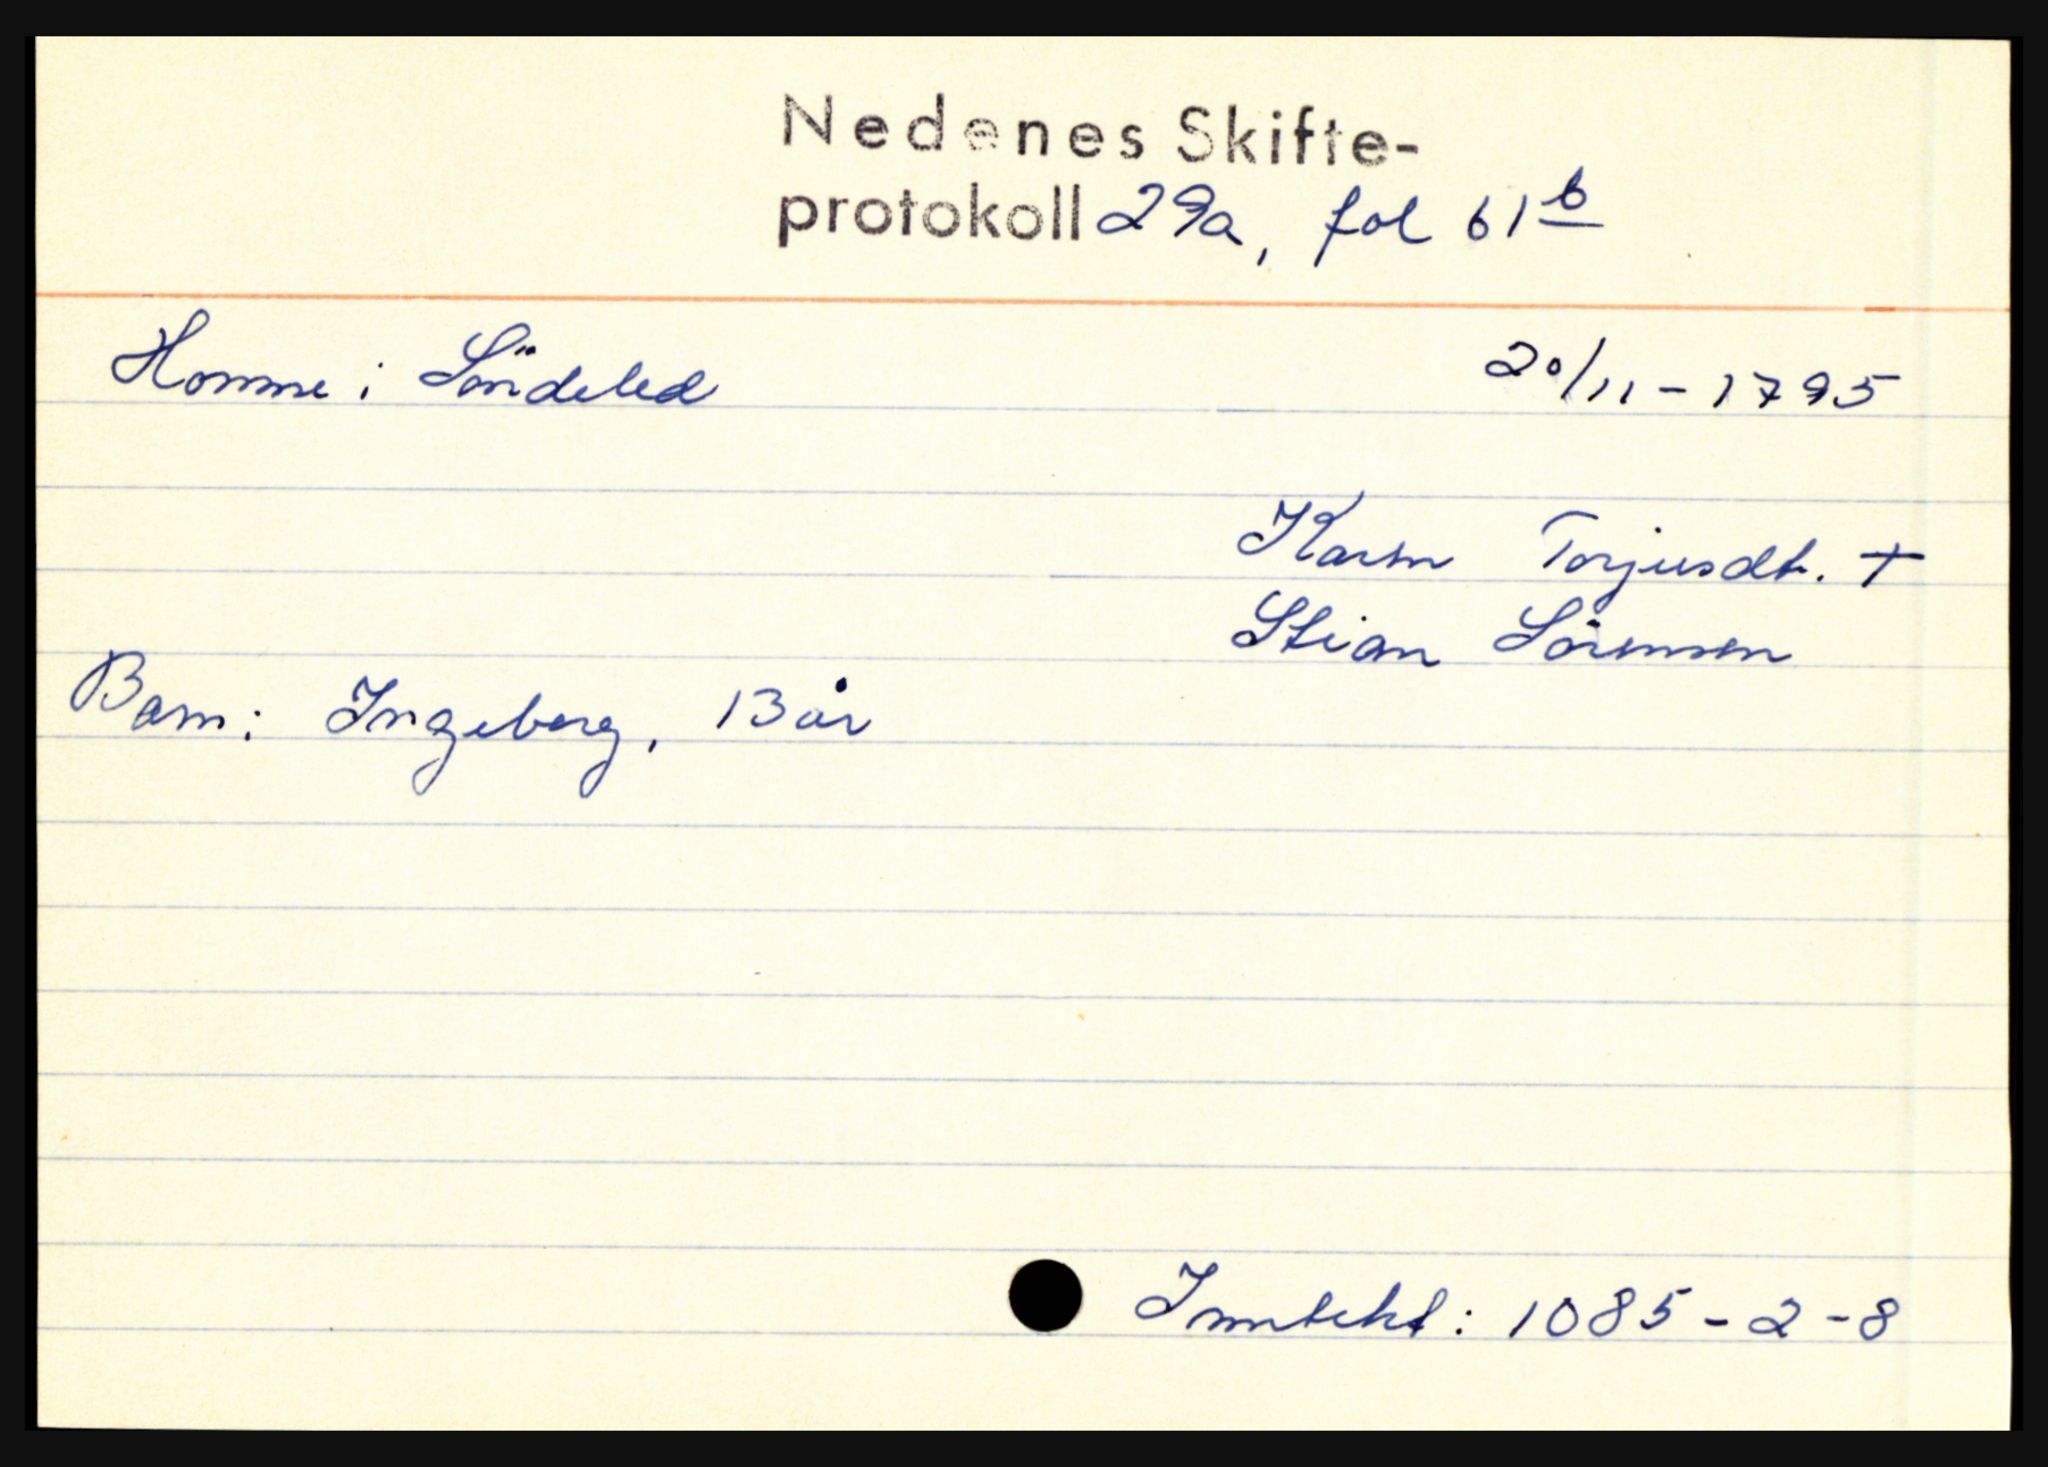 Nedenes Skifte-
protokoll 29a, fol 61b
Homme i Söndeled 20/11 - 1795
Karen Torjusdt. +
Stian Sörensen
Barn: Ingeborg, 13 år
Inntekt: 1085 - 2 - 8